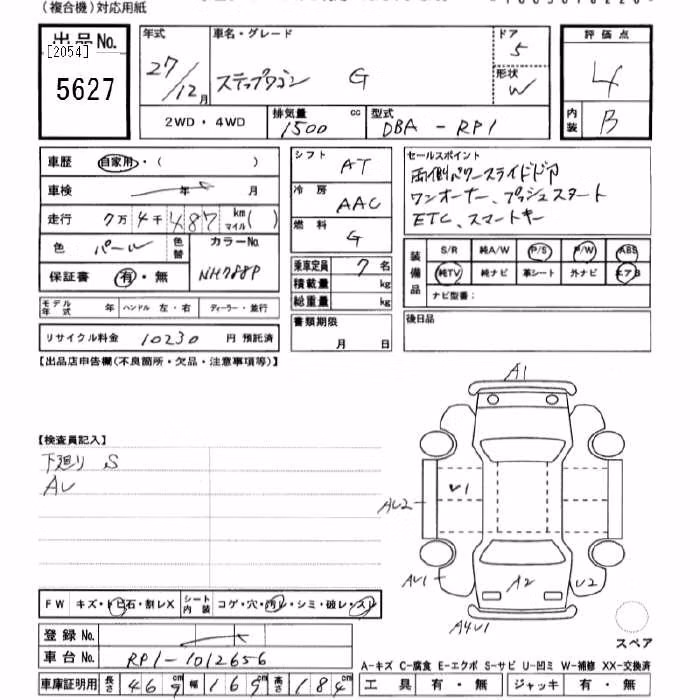 (複合機)対応用紙
出品No.
[2054]
5627
年式
27/12月
車名・グレード
ステップワゴン G
ドア
5
形状
W
評価点
4
内装
B
2WD・4WD
排気量
1500 cc
型式
DBA-RP1
車歴 自家用・( )
車検 年 月
走行 7万4千487 km マイル( )
色 パール 色替
カラーNo.
NH788P
保証書 有・無
モデル年式 年 ハンドル 左・右 ディーラー・並行
リサイクル料金 10230 円 預託済
シフト AT
冷房 AAC
燃料 G
乗車定員 7名
積載量 kg
総重量 kg
書類期限
月 日
セールスポイント
両側パワースライドドア
ワンオーナー、プッシュスタート
ETC、スマートキー
装備品
S/R 純A/W P/S P/W ABS
純TV 純ナビ 革シート 外ナビ エアB
ナビ型番:
後日品
【出品店申告欄(不良箇所・欠品・注意事項等)】
【検査員記入】
下廻り S
AU
A1
U1
AU2
AU1
A2
U2
A4U1
スペア
FW キズ・トビ石・割レX シート内装 コゲ・穴・汚レ・シミ・破レ・スレ
登録No.
車台No. RP1-1012656
車庫証明用 長さ 469cm 幅 169cm 高さ 184cm
A-キズ C-腐食 E-エクボ S-サビ U-凹ミ W-補修 XX-交換済
工具 有・無 ジャッキ 有・無